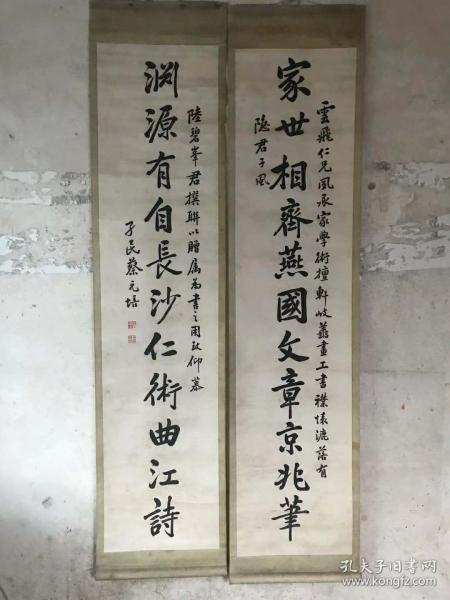 家世相齊燕國文章京兆筆
雲飛仁兄風承家學術擅軒岐兼畫工書襟懷漉落有
隐君子風
淵源有自長沙仁術曲江詩
陸碧峯君撰聯以贈属為書之用致仰慕
孑民蔡元培
孔夫子旧书网
www.kongfz.com